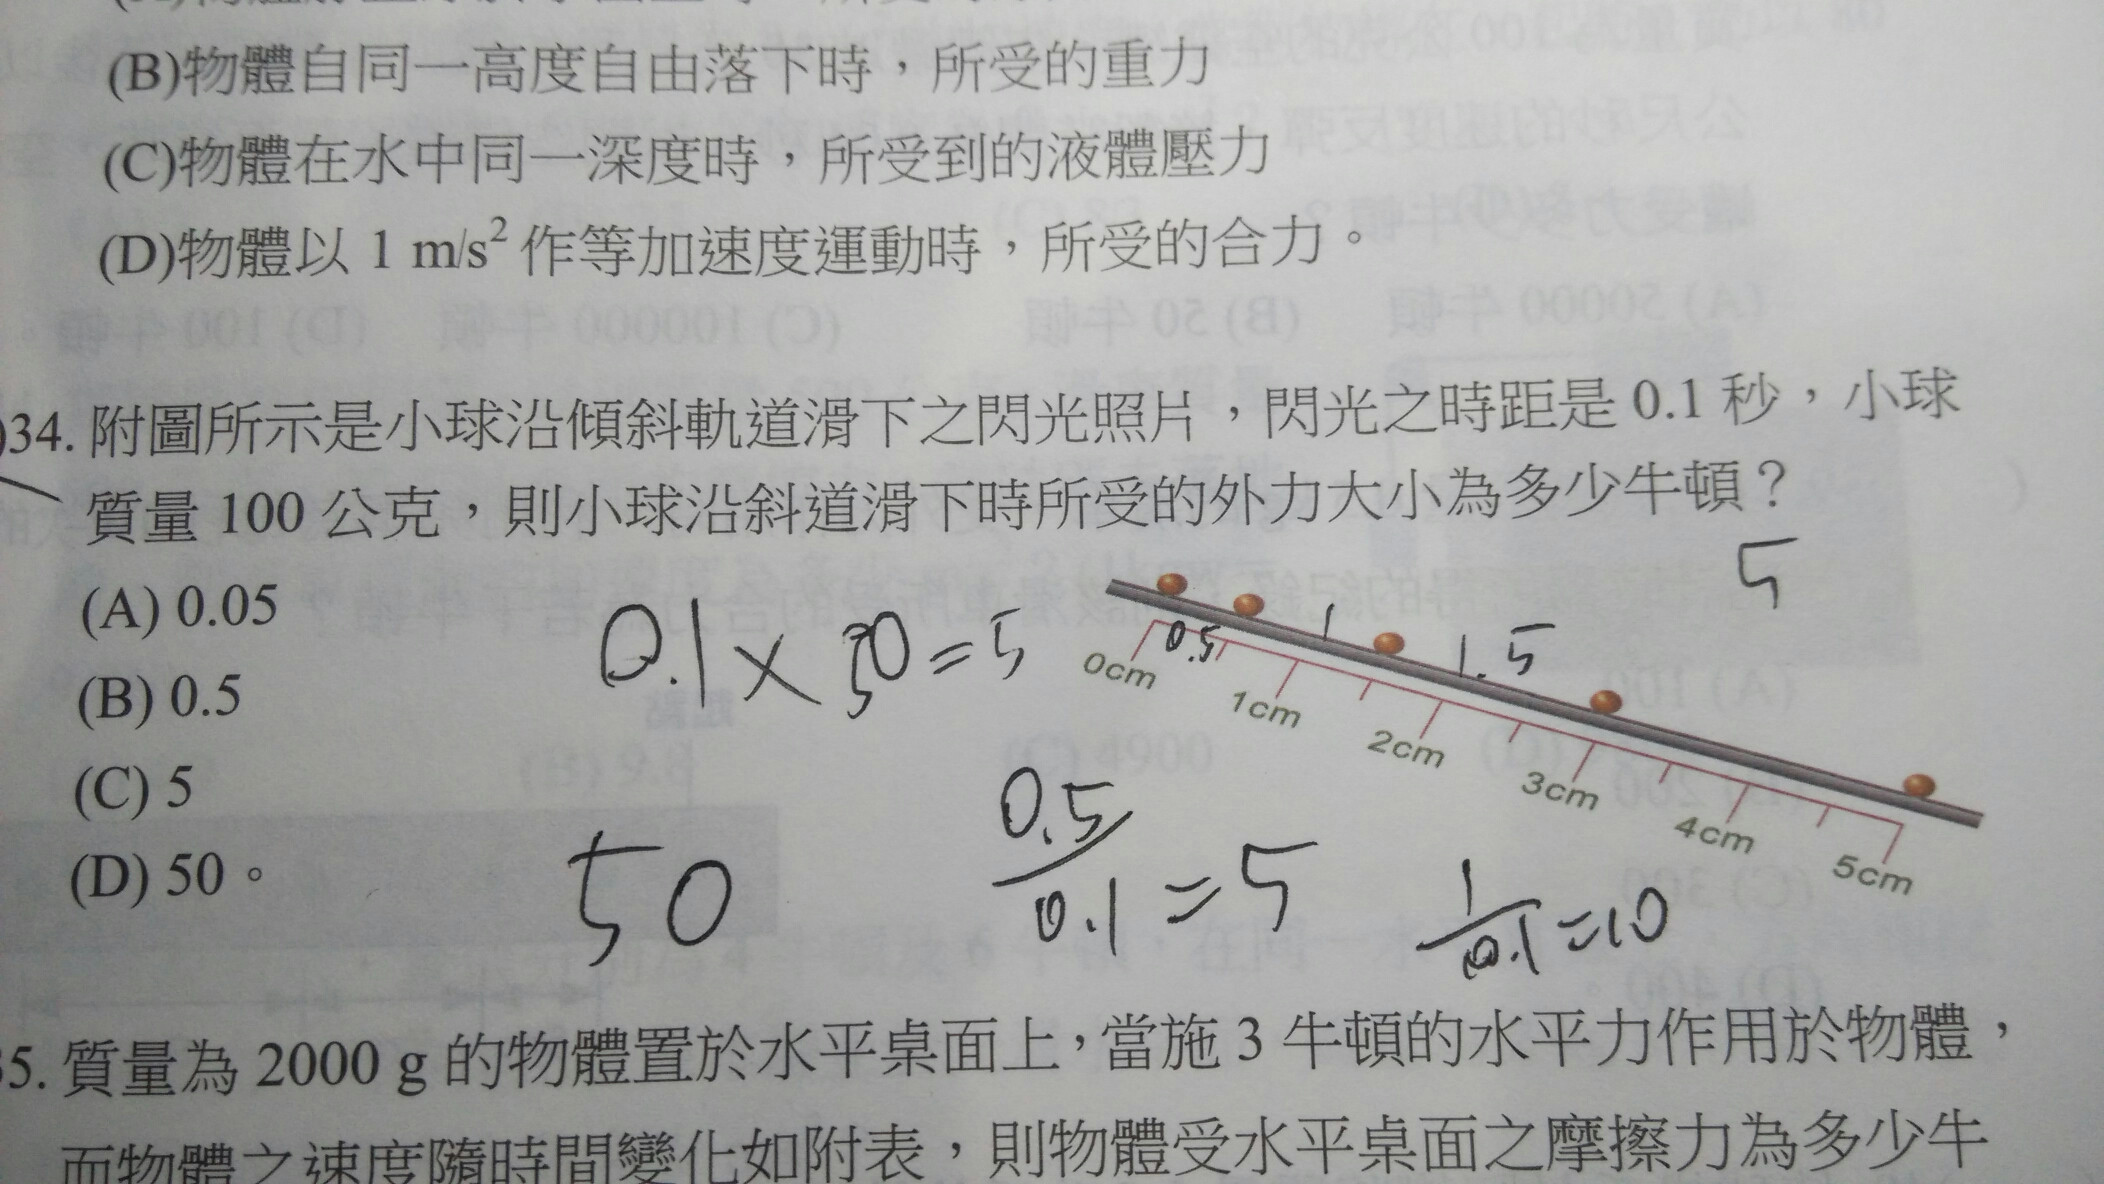 (B)物體自同一高度自由落下時，所受的重力
(C)物體在水中同一深度時，所受到的液體壓力
(D)物體以 1 m/s² 作等加速度運動時，所受的合力。
)34. 附圖所示是小球沿傾斜軌道滑下之閃光照片，閃光之時距是 0.1 秒，小球
質量 100 公克，則小球沿斜道滑下時所受的外力大小為多少牛頓？
5
(A) 0.05
0.1 × 50 = 5
0.5 1 1.5
0cm 1cm 2cm 3cm 4cm 5cm
(B) 0.5
(C) 5
(D) 50。
50
0.5/0.1 = 5
1/0.1 = 10
35. 質量為 2000 g 的物體置於水平桌面上，當施 3 牛頓的水平力作用於物體，
而物體之速度隨時間變化如附表，則物體受水平桌面之摩擦力為多少牛